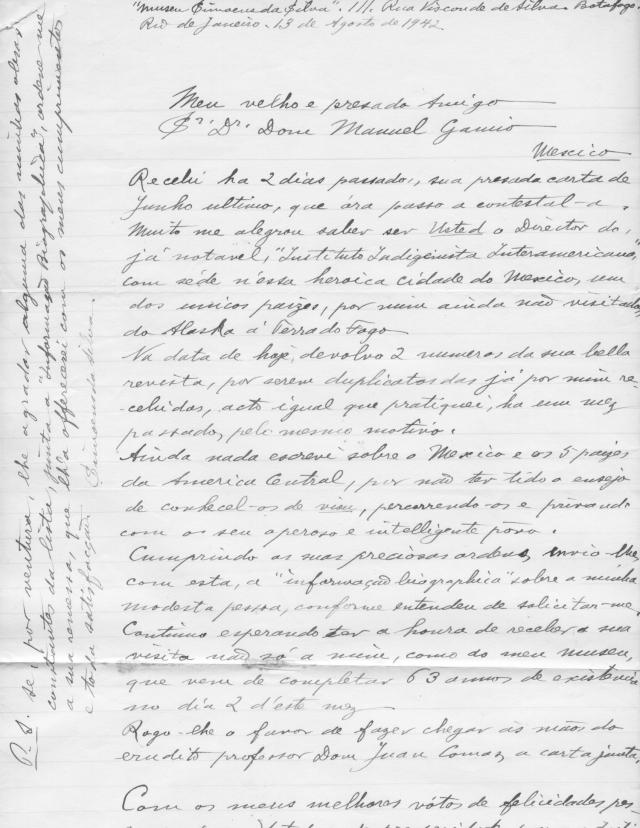 "Museu Simoens da Silva". 111. Rua Visconde de Silva. Botafogo.
Rio de Janeiro. 13 de Agosto de 1942
Meu velho e presado Amigo
Sr. Dr. Dom Manuel Gamio
Mexico
Recebi ha 2 dias passados, sua presada carta de
Junho ultimo, que óra passo a contestal-a.
Muito me alegrou saber ser Usted o Director do,
já notavel, "Instituto Indigenista Interamericano,"
com séde n'essa heroica cidade do Mexico, um
dos unicos paizes, por mim ainda não visitados,
do Alaska á Terra do Fogo
Na data de hoje, devolvo 2 numeros da sua bella
revista, por serem duplicatas das já por mim re-
cebidas, acto igual que pratiquei, ha um mez
passado, pelo mesmo motivo.
Ainda nada escrevi sobre o Mexico e os 5 paizes
da America Central, por não ter tido o ensejo
de conhecel-os de visu, percorrendo-os e privando
com os seu operoso e intelligente povo.
Cumprindo as suas preciosas ordens, envio-lhe,
com esta, a "informação biographica" sobre a minha
modesta pessoa, conforme entendeu de solicitar-me.
Continuo esperando ter a honra de receber a sua
visita não só a mim, como ao meu museu,
que vem de completar 63 annos de existencia
no dia 2 d'este mez
Rogo-lhe o favor de fazer chegar ás mãos do
erudito professor Dom Juan Comas, a carta junta,
Com os meus melhores vótos de felicidades pes-
P.S. Se, por ventura, lhe agradar alguma das minhas obras,
constantes da lista, junta a "Informação Biographica", ordene-me
a sua remessa, que lh'a offerecerei com os meus cumprimentos
e toda satisfacção. Simoens da Silva.